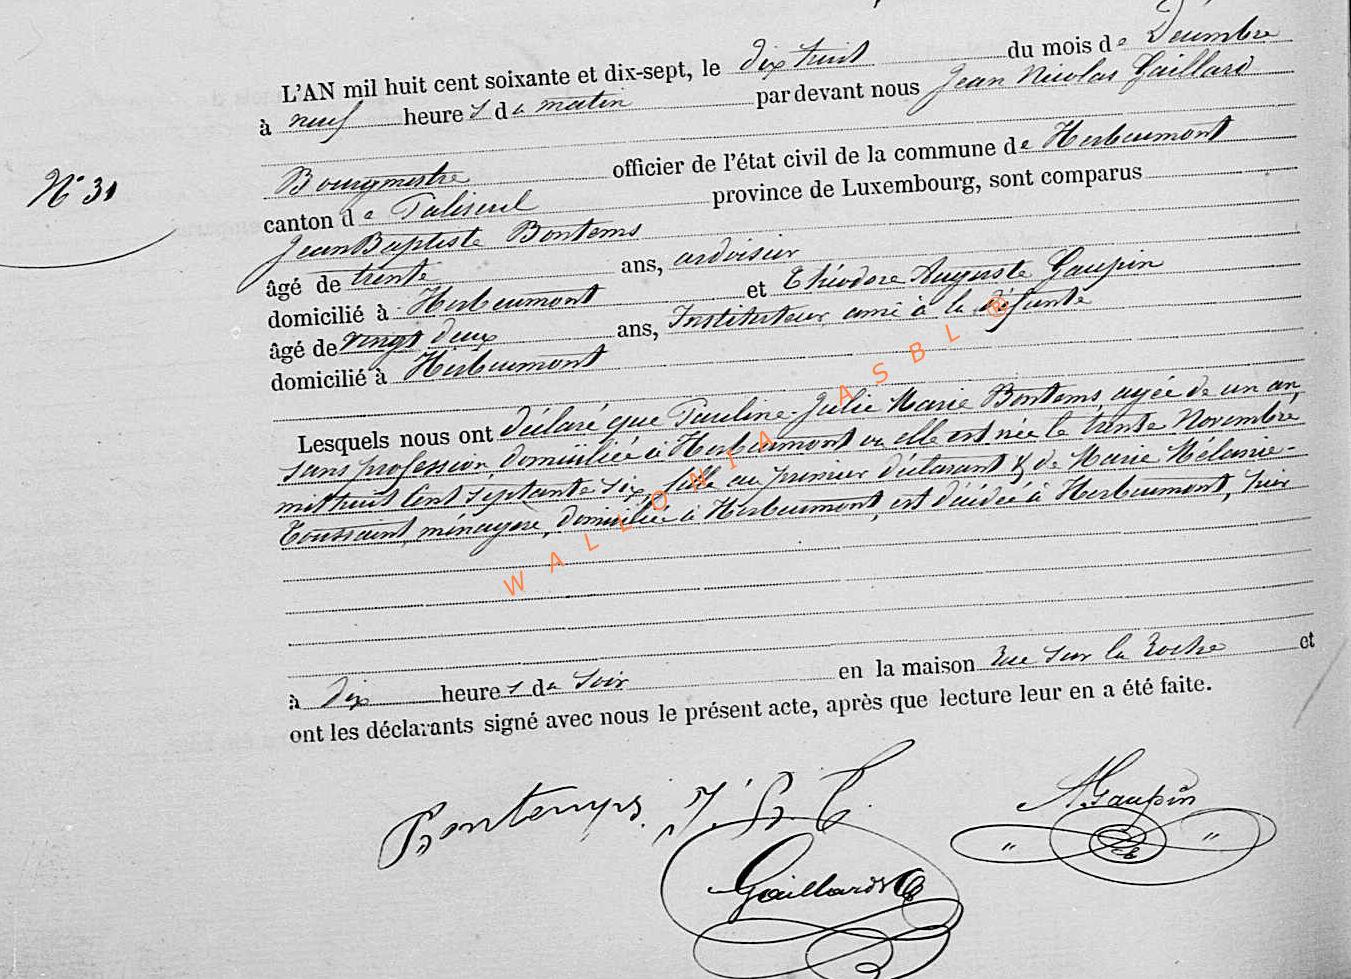 L'AN mil huit cent soixante et dix-sept, le dix huit du mois de Décembre
à neuf heures du matin par devant nous Jean Nicolas Gaillard
Bourgmestre officier de l'état civil de la commune de Herbeumont
N° 31
canton de Paliseul province de Luxembourg, sont comparus
Jean Baptiste Bontems
âgé de trente ans, ardoisier
domicilié à Herbeumont et Théodore Auguste Gaupin
âgé de vingt deux ans, Instituteur, ami à la défunte
domicilié à Herbeumont
Lesquels nous ont déclaré que Pauline Julie Marie Bontems agée de un an,
sans profession domiciliée à Herbeumont où elle est née le trente Novembre
mil huit cent septante six, fille au premier déclarant & de Marie Mélanie
Toussaint, ménagère, domiciliée à Herbeumont, est décédée à Herbeumont, hier
à dix heures du soir en la maison rue sur la Roche et
ont les déclarants signé avec nous le présent acte, après que lecture leur en a été faite.
Bontemps. J. B. T.
A Gaupin
Gaillard
WALLONIA ASBL ®